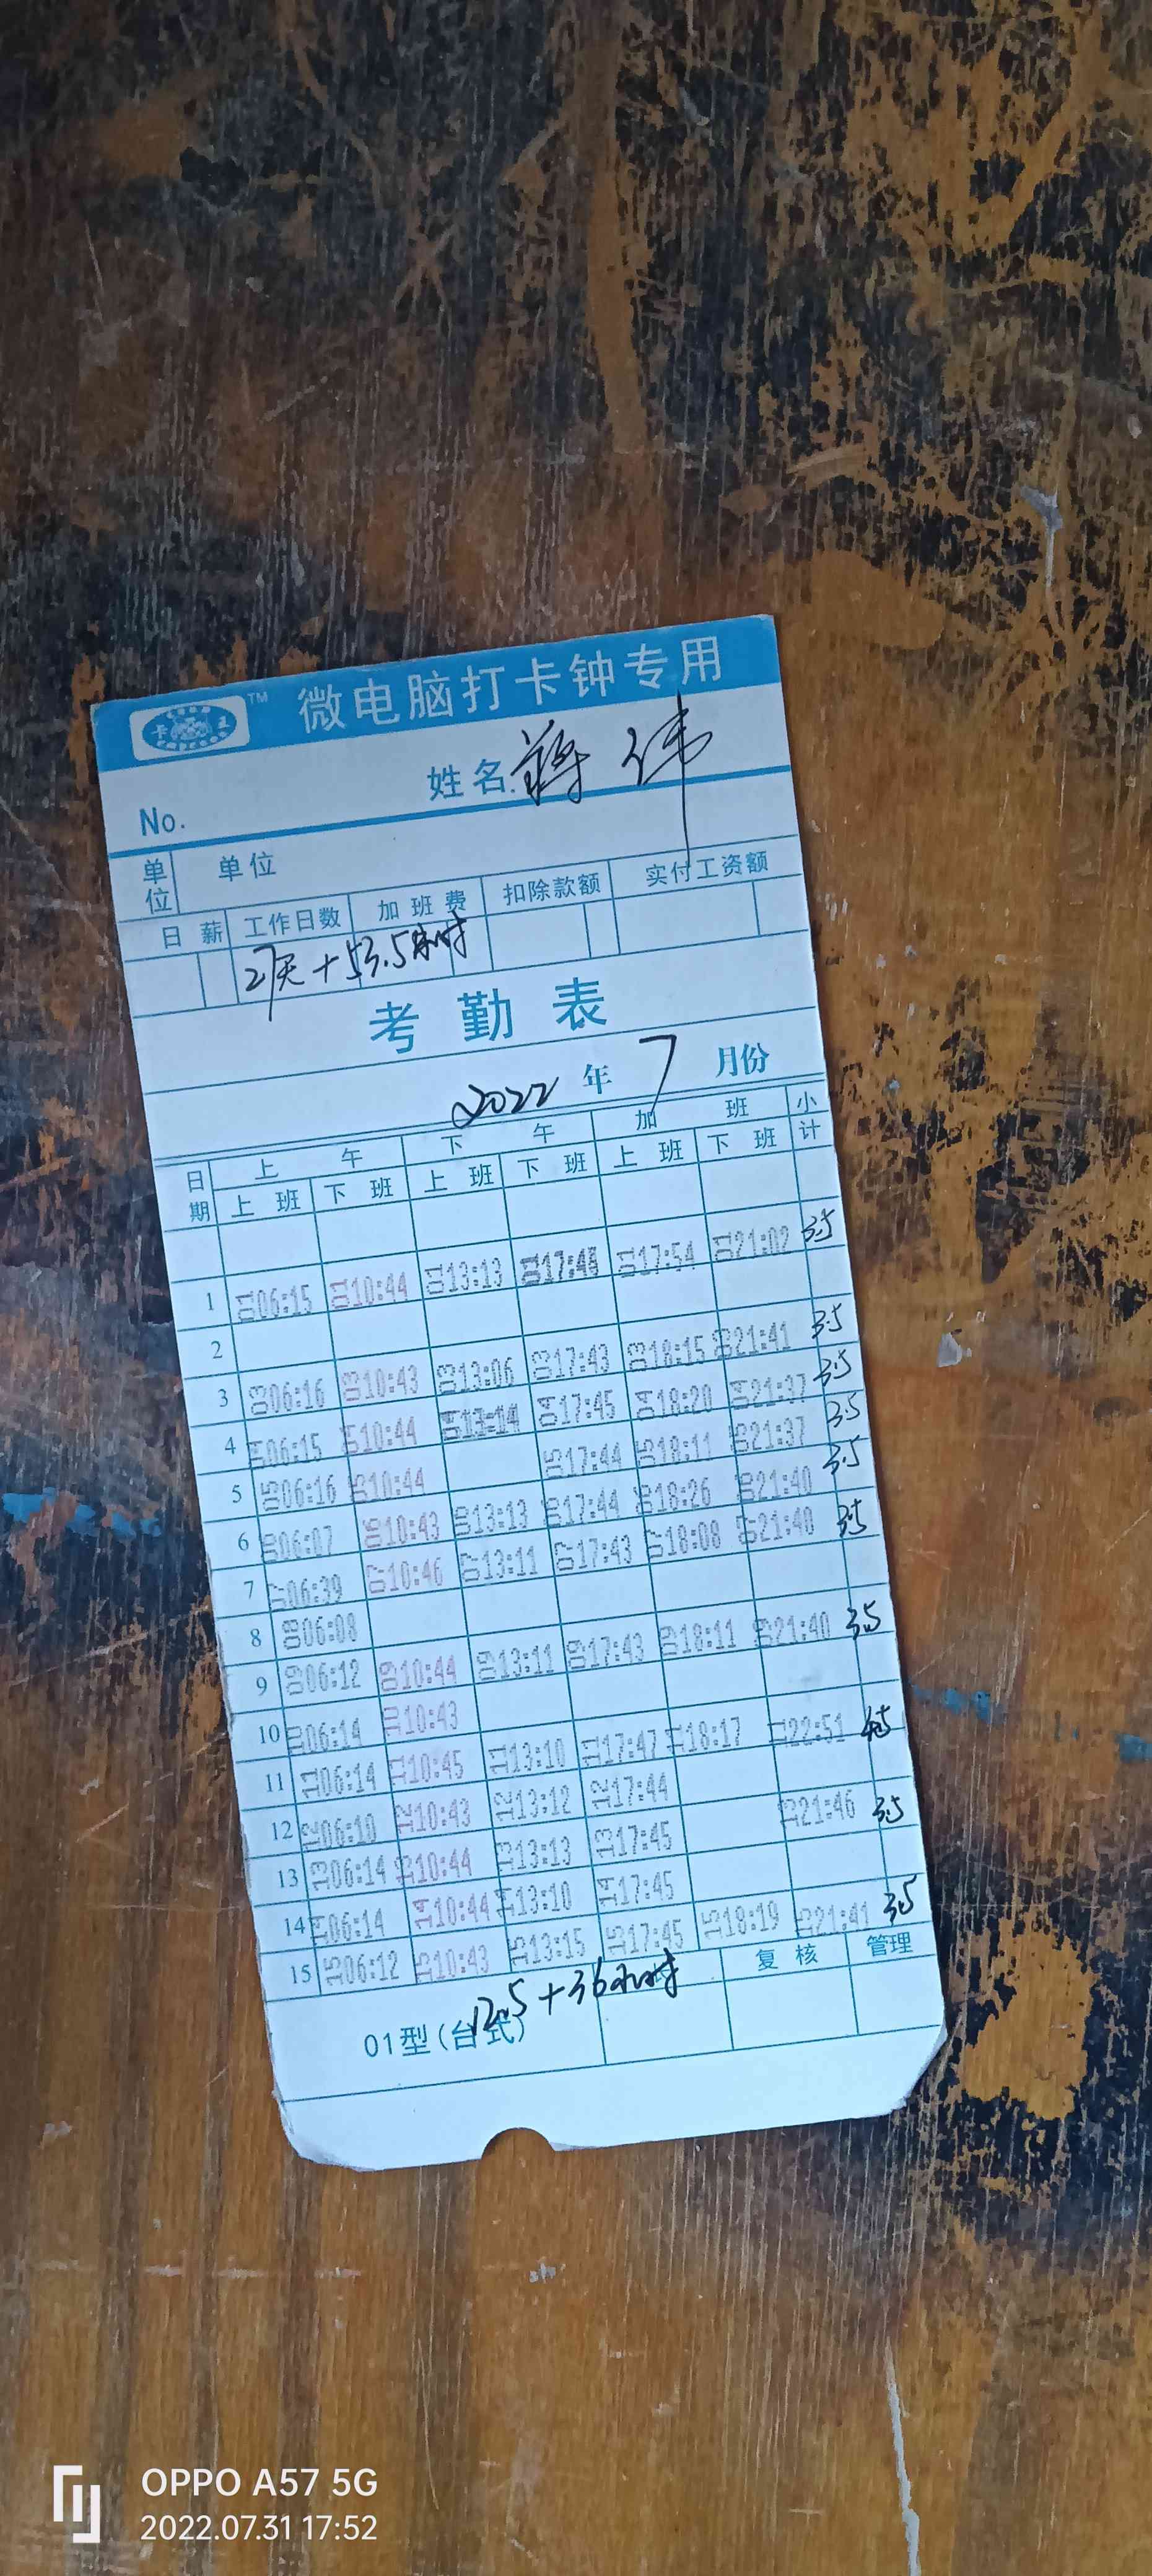 卡 王 TM 微电脑打卡钟专用
No. 姓名. 蒋伟
单位 单位
日薪 工作日数 加班费 扣除款额 实付工资额
27天+53.5小时
考勤表
2022年7月份
日期 上午 下午 加班 小计
上班 下班 上班 下班 上班 下班
1 01 06:15 01 10:44 01 13:13 01 17:48 01 17:54 01 21:02 3.5
2
3 03 06:16 03 10:43 03 13:06 03 17:43 03 18:15 03 21:41 3.5
4 04 06:15 04 10:44 04 13:14 04 17:45 04 18:20 04 21:37 3.5
5 05 06:16 05 10:44 05 17:44 05 18:11 05 21:37 3.5
6 06 06:07 06 10:43 06 13:13 06 17:44 06 18:26 06 21:40 3.5
7 07 06:39 07 10:46 07 13:11 07 17:43 07 18:08 07 21:40 3.5
8 08 06:08
9 09 06:12 09 10:44 09 13:11 09 17:43 09 18:11 09 21:40 3.5
10 10 06:14 10 10:43
11 11 06:14 11 10:45 11 13:10 11 17:47 11 18:17 11 22:51 4.5
12 12 06:10 12 10:43 12 13:12 12 17:44
13 13 06:14 13 10:44 13 13:13 13 17:45 13 21:46 3.5
14 14 06:14 14 10:44 14 13:10 14 17:45
15 15 06:12 15 10:43 15 13:15 15 17:45 15 18:19 15 21:41 3.5
复核 管理
12.5+36小时
01型(台式)
OPPO A57 5G
2022.07.31 17:52